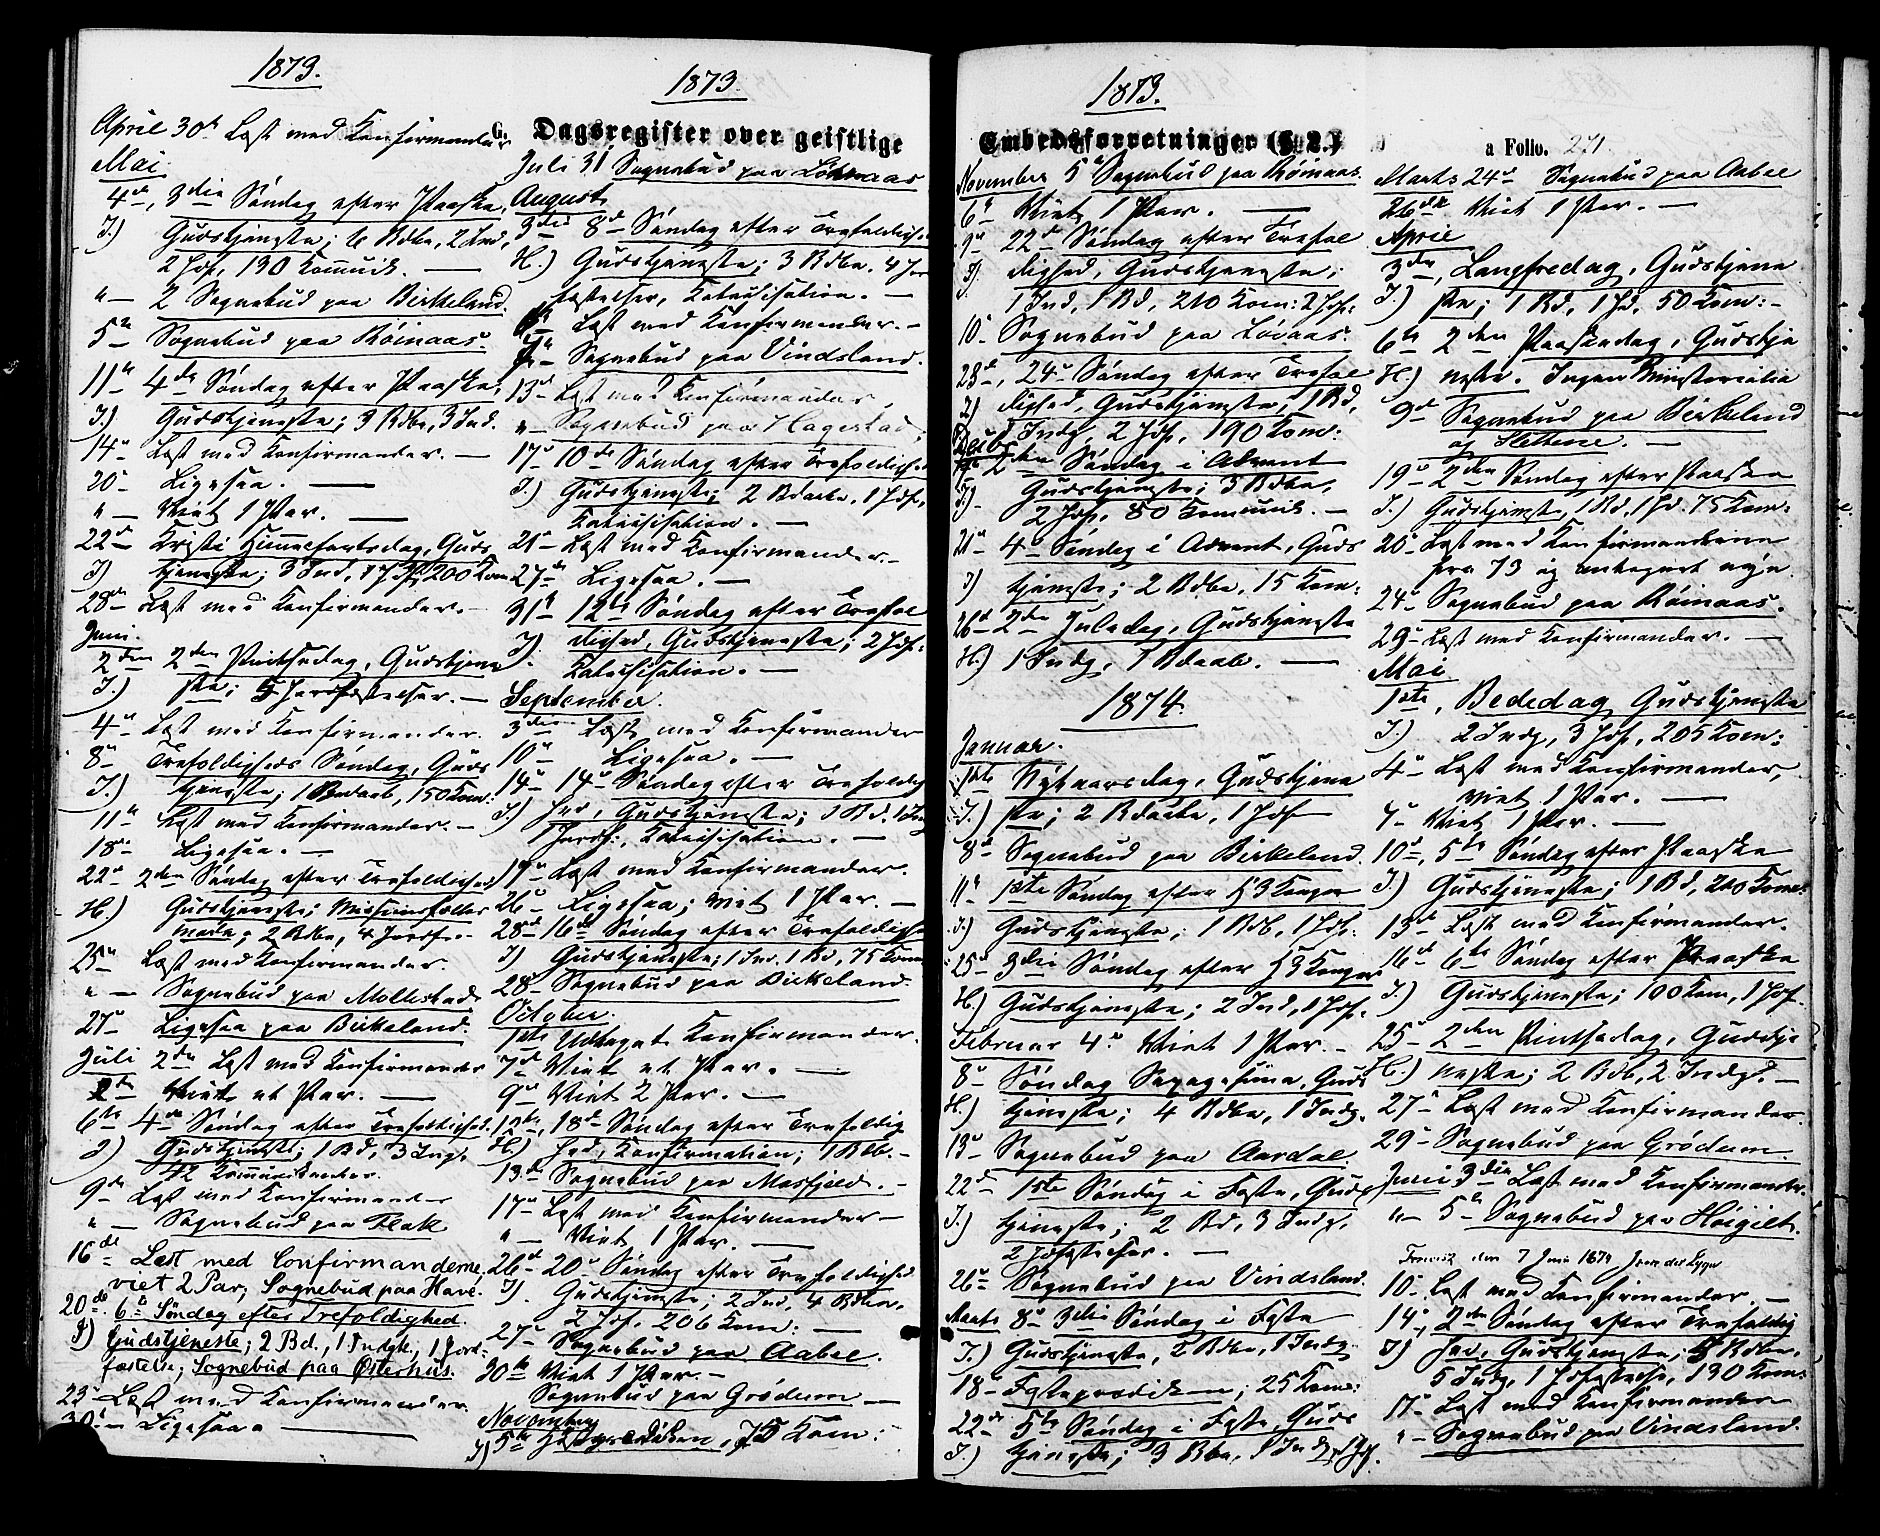 1873.
April 30te Læst med Konfirmander
Mai
4de, 3die Søndag efter Paaske,
J.) Gudstjeneste; 6 Bdbe, 2 Ind,
2 Jdf, 190 Kommunik. —
" — 2 Sognebud paa Birkeland.
5te Sognebud paa Røinaas.
11te 4de Søndag efter Paaske.
J.) Gudstjeneste; 3 Bdbe, 3 Ind.
14de Læst med Konfirmander. —
20de Ligesaa. —
" — Viet 1 Par. —
22de Kristi Himmelfartsdag, Guds
J) tjeneste; 3 Ind, 1 Jdf, 200 Kom
28de Læst med Konfirmander. —
Juni.
2den 2den Pintsedag, Gudstjene
J.) ste; 5 Jordfæstelser. —
4de Læst med Konfirmander.
8de Trefoldigheds Søndag, Guds
J.) tjeneste; 1 Bdaab, 150 Kom:
11te Læst med Konfirmander. —
18de Ligesaa. —
22de 2den Søndag efter Trefoldighed
H.) Gudstjeneste; Missionsfælles
møde; 2 Bdbe, 4 Jordf. —
25de Læst med Konfirmander.
" — Sognebud paa Mollestad.
27de Ligesaa paa Birkeland.
Juli 2den Læst med Konfirmander
Viet et Par. —
6te 4de Søndag efter Trefoldighed.
J) Gudstjeneste; 1 Bd, 3 Ing,
42 Kommunikanter.
9de Læst med Konfirmander
" — Sognebud paa Flak
16de Læst med Confirmanderne,
viet 2 Par; Sognebud paa Have.
20de. 6te Søndag efter Trefoldighed.
J) Gudstjeneste; 2 Bd., 1 Indgk., 1 Jord-
fæstelse; Sognebud paa Østerhus.
23de Læst med Konfirmander.
30te Ligesaa. —
1873.
G. Dagsregister over geistlige
Juli 31 Sognebud paa
August
3die 8de Søndag efter Trefoldighed
H.) Gudstjeneste; 3 Bdbe. 4 Jor
fæstelser, Katekisation. —
6te Læst med Konfirmander. —
Sognebud paa Vindsland.
13de Læst med Konfirmander,
" Sognebud paa Hagestad,
17de 10de Søndag efter Trefoldighed
J.) Gudstjeneste; 2 Bdaabe, 1 Jdf,
Katekisation. —
21de Læst med Konfirmander. —
27de Ligesaa. —
31te 12te Søndag efter Trefol
J). dighed, Gudstjeneste; 2 Jdf.
Katekisation. —
September.
3die Læst med Konfirmander
10de Ligesaa. —
14de 14de Søndag efter Trefoldig
J.) hed, Gudstjeneste; 1 Bd. 1 Ind,
1 Jordf: Katekisation. —
19de Læst med Konfirmander.
26de Ligesaa; viet 1 Par. —
28de 16de Søndag efter Trefoldighed
J) Gudstjeneste; 1 Ind. 1 Bd, 75 Kom
28de Sognebud paa Birkeland.
October.
1ste Udtaget Konfirmander.
7de Viet et Par. —
9de Viet 2 Par. —
12te, 18de Søndag efter Trefoldig
H.) hed, Konfirmation; 1 Bdb. —
13de Sognebud paa Mosfjeld. —
17de Læst med Konfirmander —
" — Viet 1 Par. —
26de 20de Søndag efter Trefoldighed
J). Gudstjeneste; 2 Ind, 4 Bdbe,
2 Jdf, 206 Kom: —
27de Sognebud paa Aabel.
30te Viet 1 Par. —
Sognebud paa Grødum —
November
5te 75 Kom:
1873.
Embedsforretninger (§. 2.)
November 5te Sognebud paa Røinaas.
6te Viet 1 Par. —
9de 22de Søndag efter Trefol
J). dighed, Gudstjeneste;
1 Ind, 1 Bd, 210 Kom: 2 Jdf:
10de Sognebud paa Løvaas.
23de, 24de Søndag efter Trefol
J) dighed, Gudstjeneste, 1 Bd,
Indg, 2 Jdf, 190 Kom:
Decbr
7de 2den Søndag i Advent
J). Gudstjeneste; 3 Bdbe,
2 Jdf, 80 Kommunik. —
21de 4de Søndag i Advent, Guds
J) tjeneste; 2 Bdbe, 15 Kom:
26de 2den Juledag, Gudstjeneste
H.) 1 Indg, 1 Bdaab. —
1874.
Januar.
1ste Nytaarsdag, Gudstjene
J.) ste; 2 Bdaabe, 1 Jdf
8de Sognebud paa Birkeland.
11te 1ste Søndag efter H 3 Konger
J.) Gudstjeneste; 1 Bdb, 1 Jdf.
25de 3die Søndag efter H 3 Konger
H.) Gudstjeneste; 2 Ind, 1 Jdf.
Februar 4de Viet 1 Par. —
8de Søndag Sexagesima, Guds
H.) tjeneste; 4 Bdbe, 1 Indg.
13de Sognebud paa Aardal.
22de 1ste Søndag i Faste, Guds
J.) tjeneste; 2 Bd, 3 Indg.
2 Jdfæstelser. —
26de Sognebud paa Vindsland.
Marts 8de 3die Søndag i Faste
J.) Gudstjeneste, 2 Bdbe, 1 Indg.
18de Fasteprædiken; 25 Kom:
22de 5te Søndag i Faste, Guds
J.) tjeneste; 3 Bdbe, 1 Indg, 1 Jdf.
a Folio. 271.
Marts 24de Sognebud paa Aabel
26de Viet 1 Par. —
April
3die, Langfredag, Gudstjene
J.) ste; 1 Bd, 1 Jd, 50 Kom: —
6te 2den Paaskedag, Gudstje
H.) neste. Ingen Ministerialia
9de Sognebud paa Birkeland
og Hettene. —
19de 2den Søndag efter Paaske
J.) Gudstjeneste, 1 Bd, 1 Jd. 75 Kom:
20de Læst med Konfirmanderne
fra 73 og antegnet nye.
24de Sognebud paa Røinaas.
29de Læst med Konfirmander. —
Mai
1ste, Bededag Gudstjeneste
J.) 2 Indg, 3 Jdf, 205 Kom:
4de Læst med Konfirmander,
viet 1 Par. —
7de Viet 1 Par. —
10de, 5te Søndag efter Paaske
J.) Gudstjeneste; 1 Bd, 210 Kom:
13de Læst med Konfirmander.
16de 6te Søndag efter Paaske
J.) Gudstjeneste; 100 Kom, 1 Jdf.
25de 2den Pintsedag, Gudstje
H.) neste; 2 Bdb, 2 Indg. —
27de Læst med Konfirmander
29de Sognebud paa Grødum.
Juni 3die Læst med Konfirmander.
" — 5te Sognebud paa Høigilt.
den 7 Juni 1874
10de Læst med Konfirmander. —
14de, 2den Søndag efter Trefoldig
J) hed, Gudstjeneste, 5 Bdbe,
5 Indg, 1 Jdfæstelse, 130 Kom:
17de Læst med Konfirmander
" — Sognebud paa Vindsland.